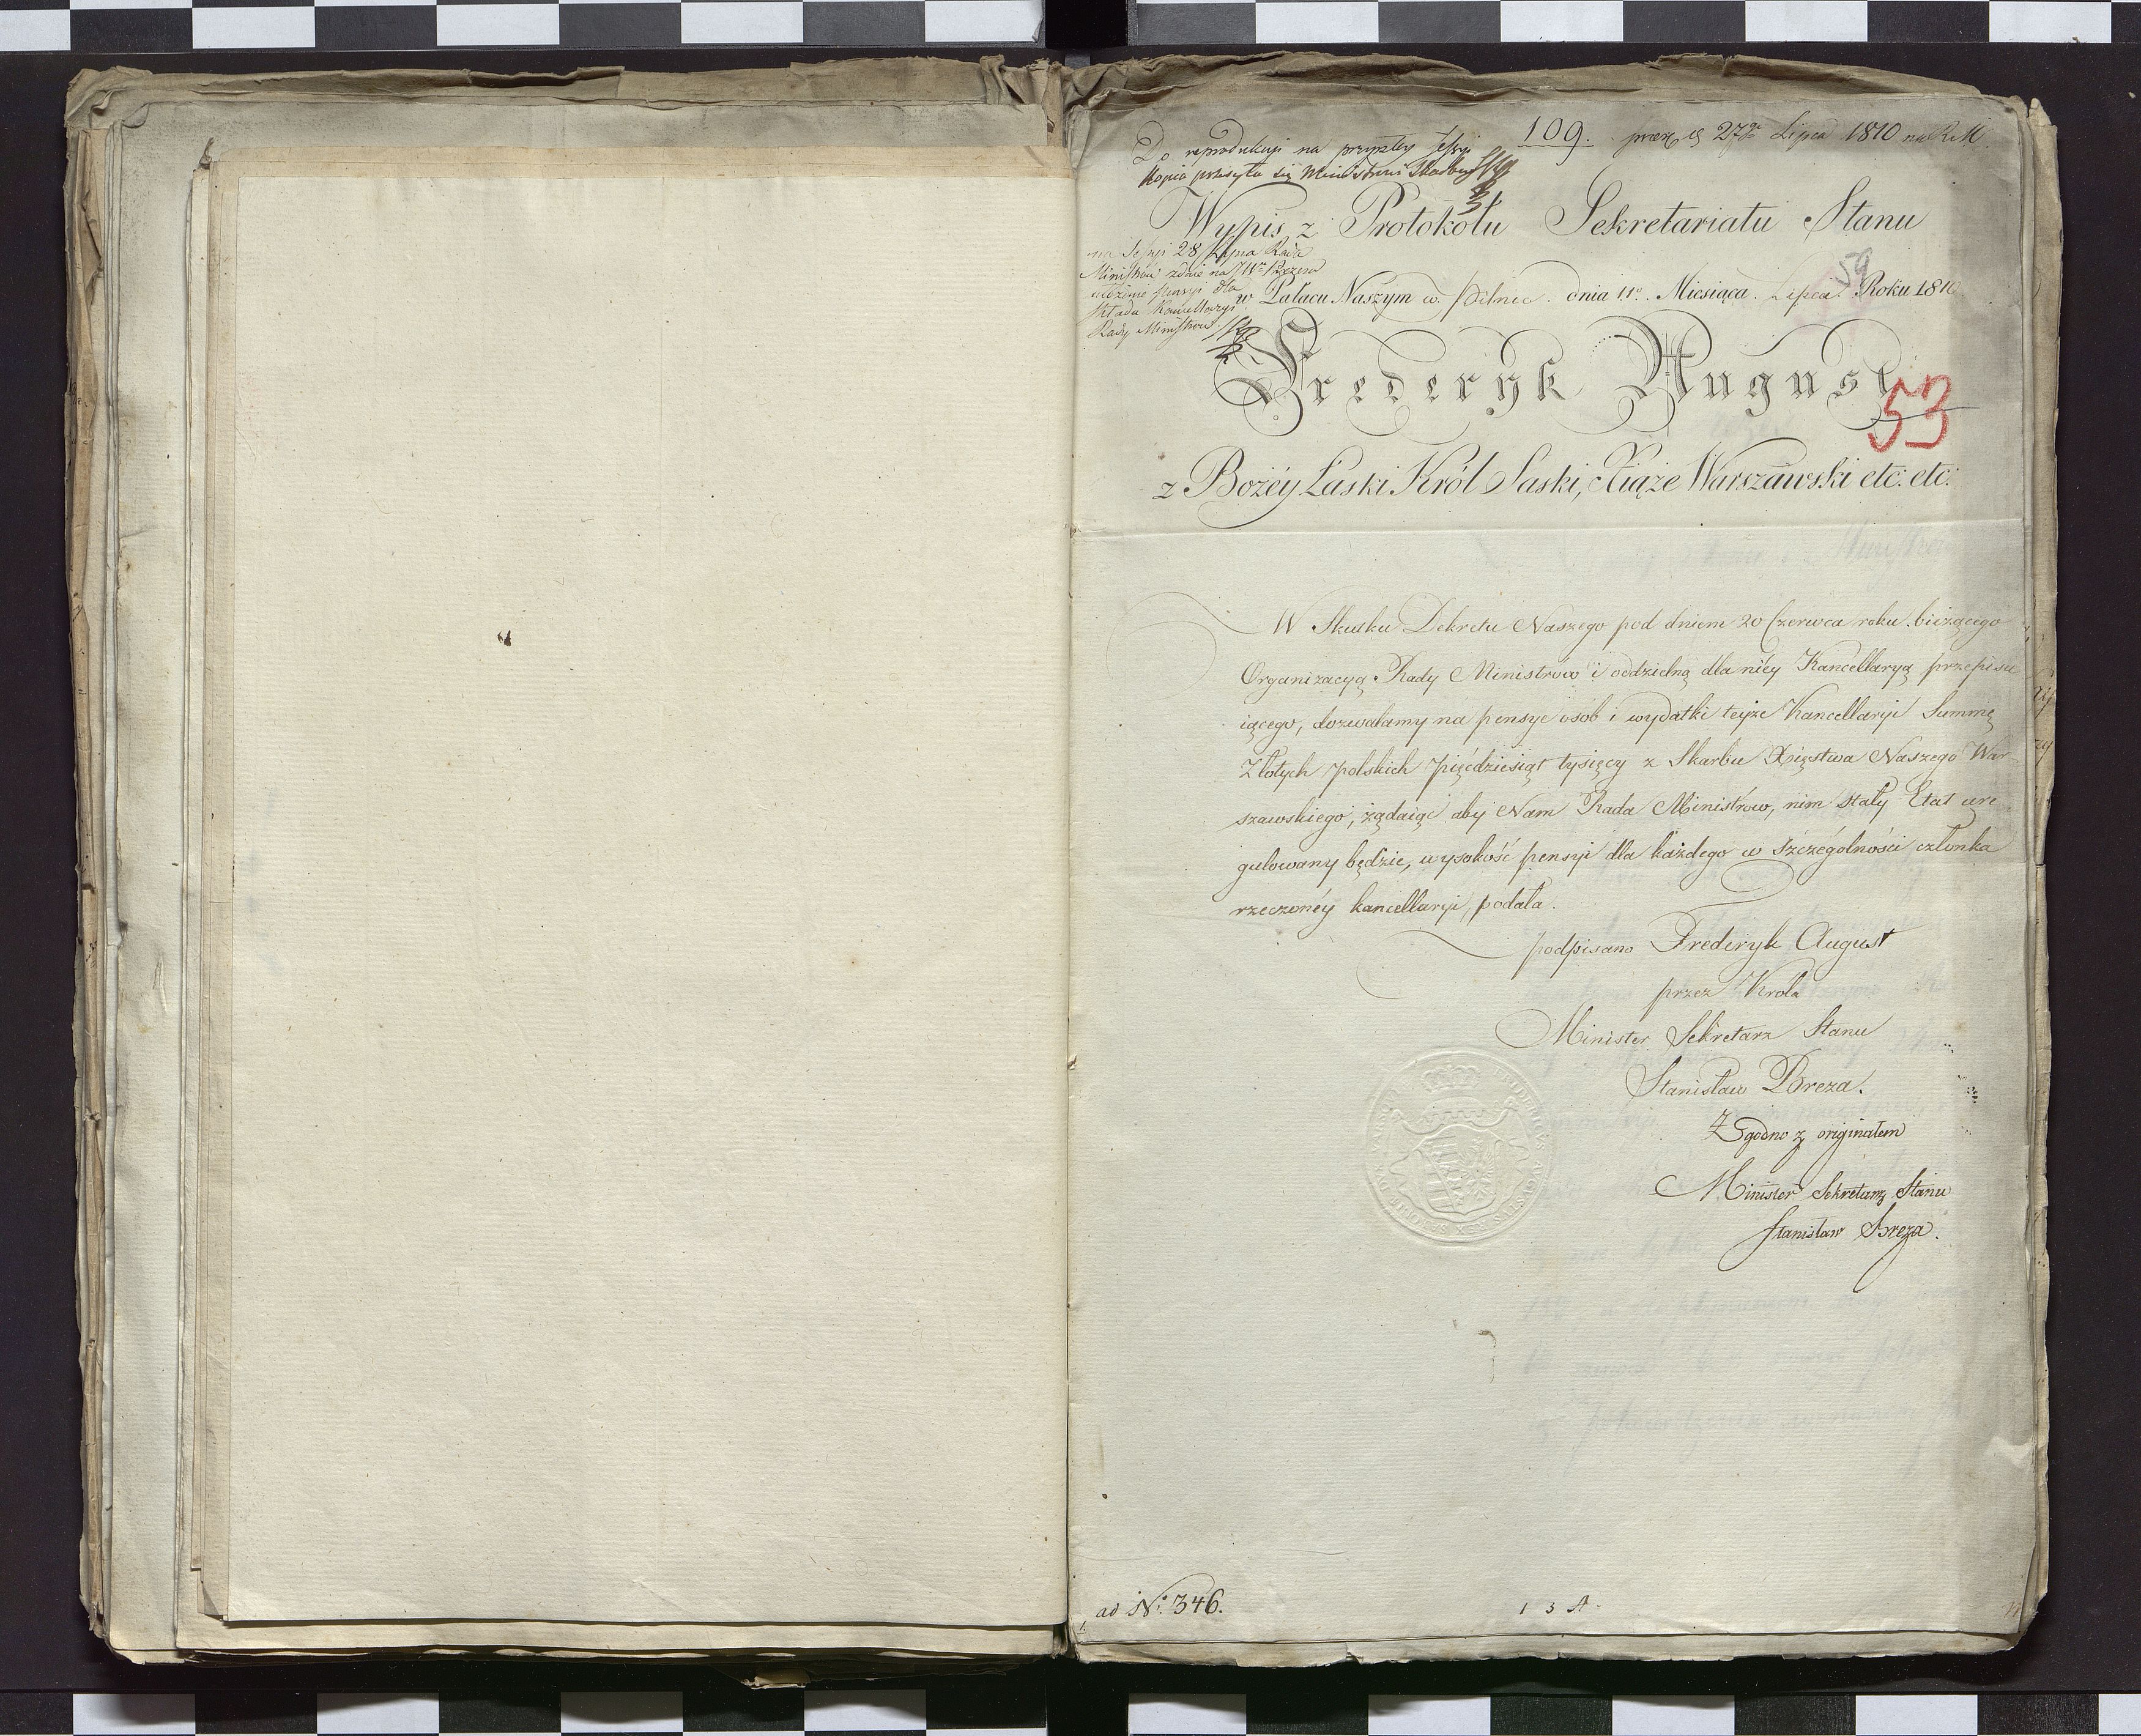 109. 27go Lipca 1810 na R M
Do reprodukcyi na przyszłey Sessyi
Kopia przesyła się Ministrowi Skarbu
Wypis z Protokółu Sekretariatu Stanu
na Sessyi 28 Lipca Rada
Ministrów zdaie na JWo Prezesa
pensyi dla
składu Kancellaryi
Rady Ministrów
59
w Pałacu Naszym w Pilnic dnia 11o Miesiąca Lipca Roku 1810
Frederyk August
53
z Bożéy Łaski Król Saski, Xiąże Warszawski etc: etc:
W Skutku Dekretu Naszego pod dniem 20 Czerwca roku bieżącego
Organizacyą Rady Ministrów i oddzielną dla niéy Kancellaryą przepisu
iącego, dozwalamy na pensye osób i wydatki teyże Kancellaryi Summę
Złotych polskich pięćdziesiąt tysięcy z Skarbu Xięstwa Naszego War
szawskiego, żądaiąc aby Nam Rada Ministrów, nim stały Etat ure
gulowany będzie, wysokość pensyi dla każdego w szczególności członka
rzeczonéy kancellaryi, podała.
podpisano Frederyk August
przez Króla
Minister Sekretarz Stanu
Stanisław Breza.
Zgodno z originałem
Minister Sekretarz Stanu
Stanisław Breza.
ad No. 346.
1 3 A